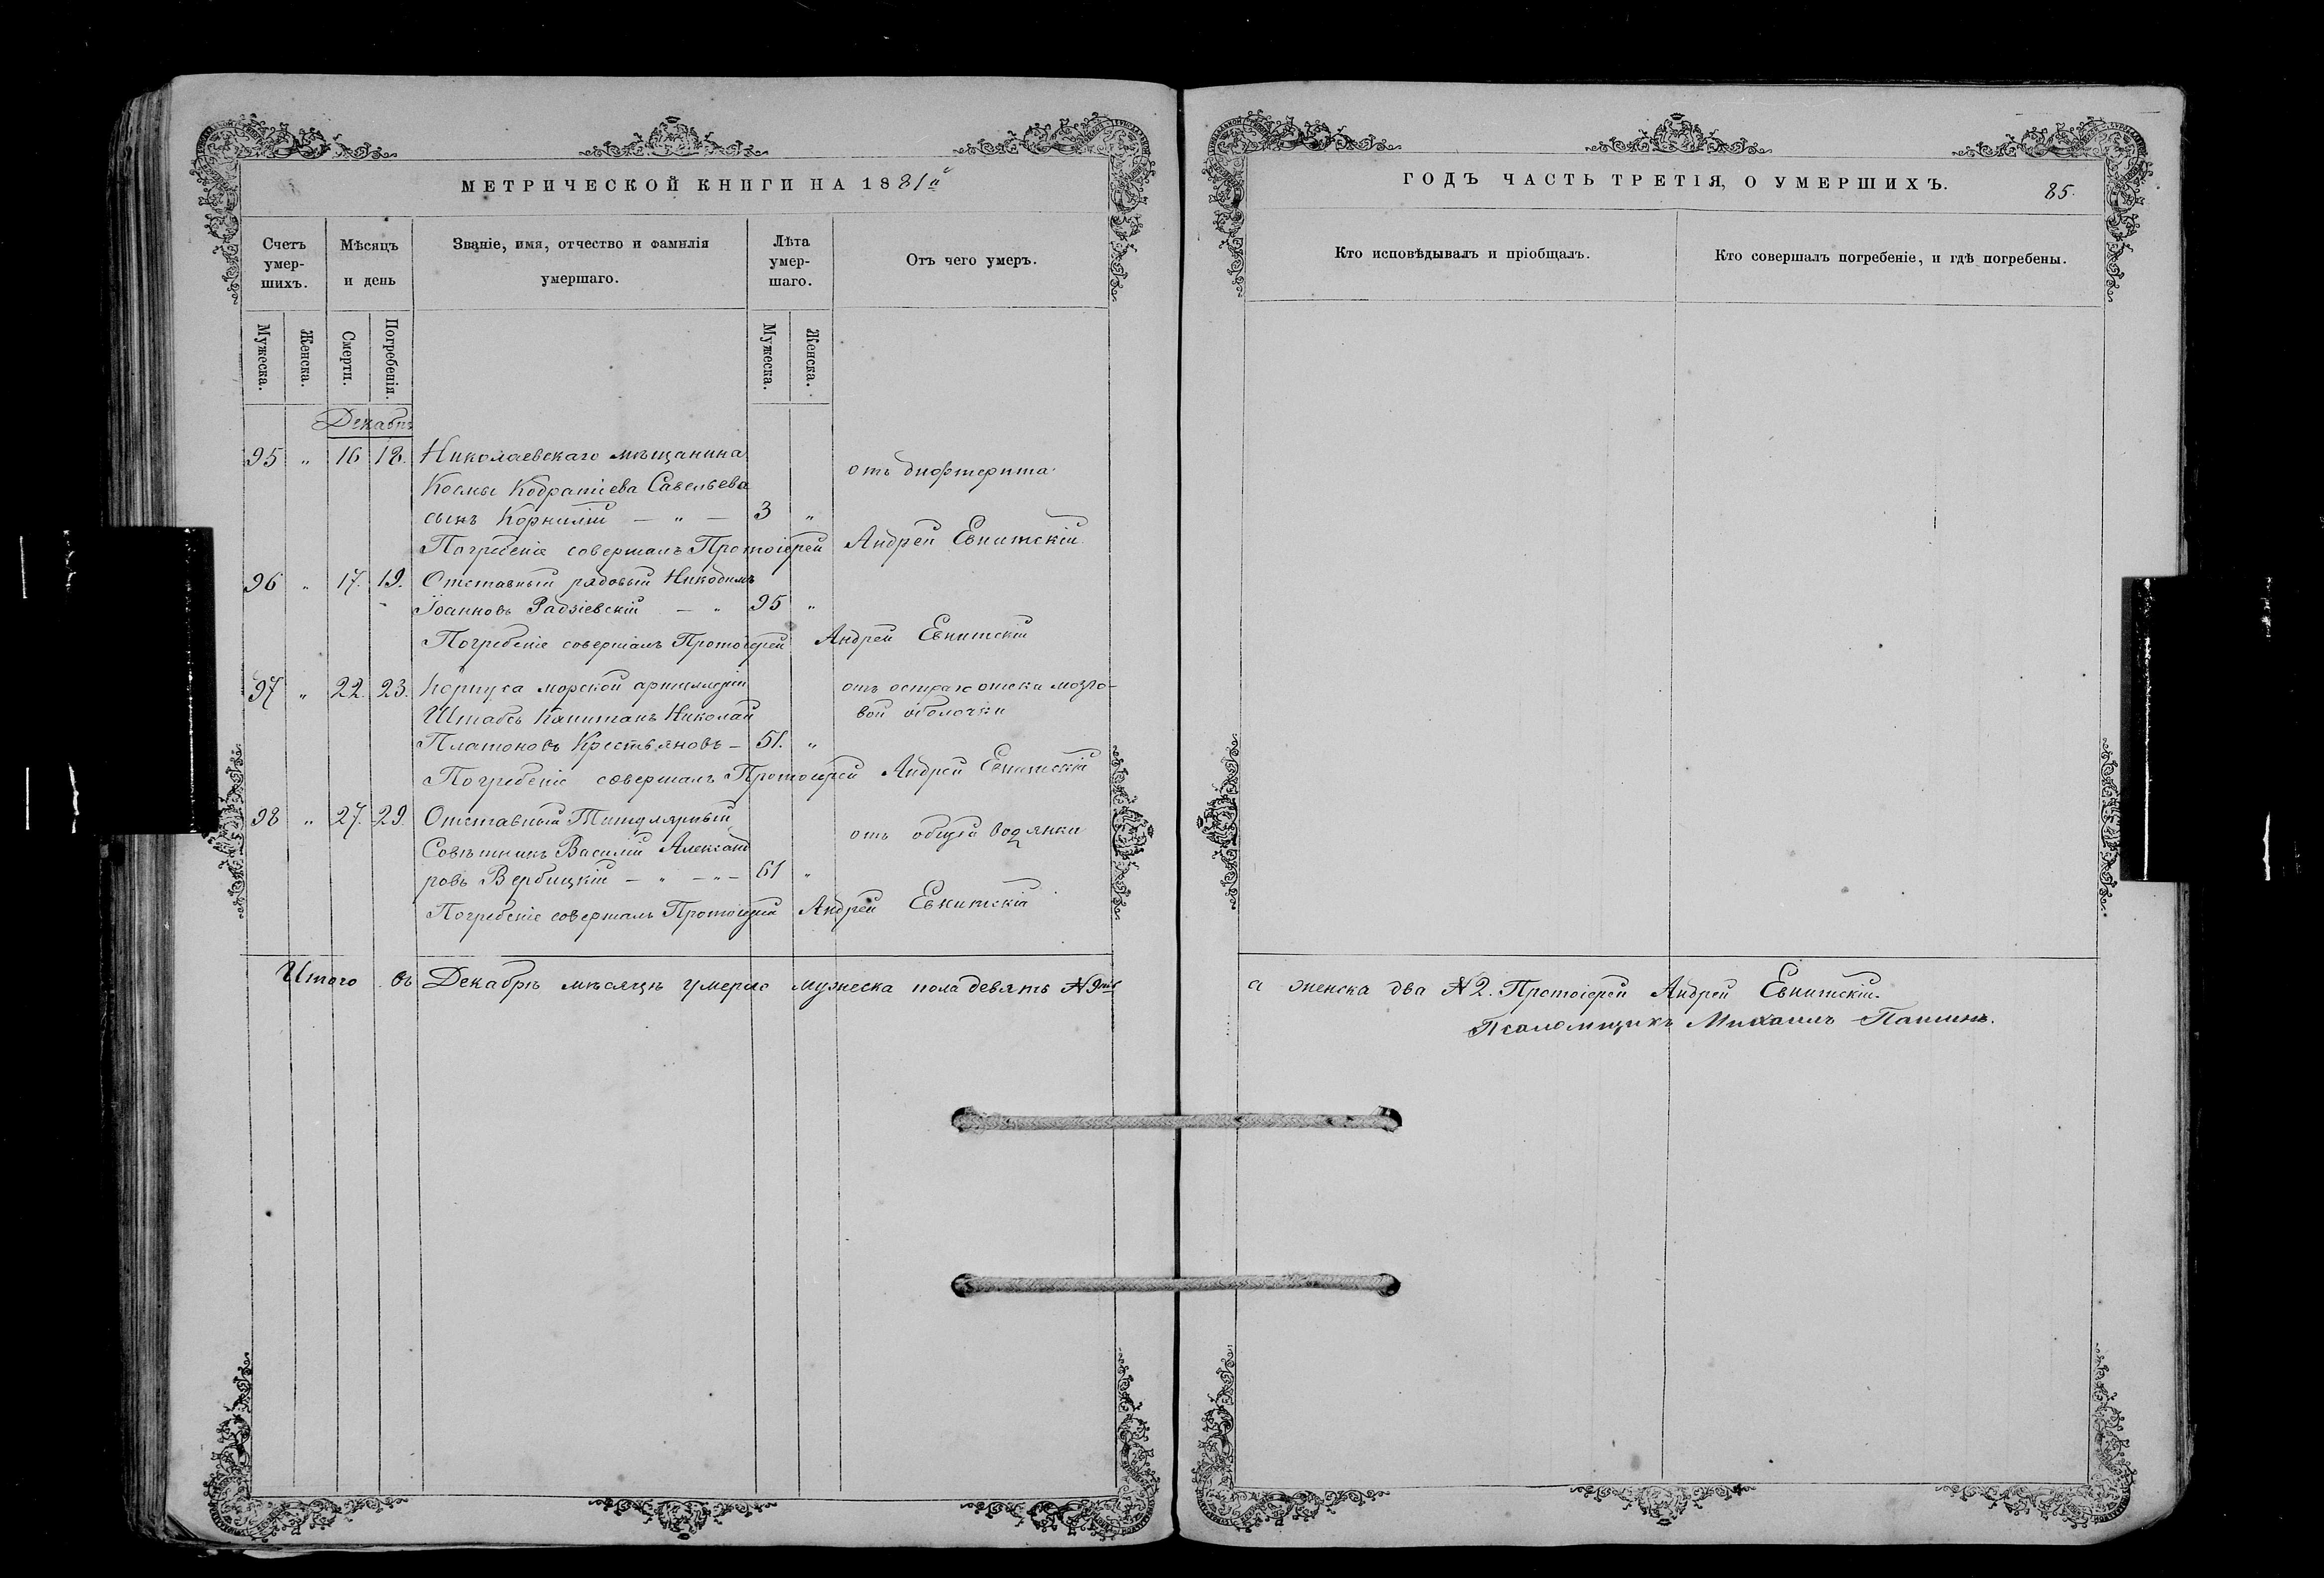 МЕТРИЧЕСКОЙ КНИГИ НА 1881й
Счетъ умер-шихъ.
Мѣсяцъ и день
Званіе, имя, отчество и фамилія умершаго.
Лѣта умер-шаго.
Отъ чего умеръ.
Мужеска.
Женска.
Смерти.
Погребенія.
Мужеска.
Женска.
Декабрь
95 " 16 18. Николаевскаго мѣщанина
отъ дифтерита
Космы Кодратіева Савельева
сынъ Корнилій — " — 3 "
Погребеніе совершалъ Протоіерей Андрей Евнитскій
96 " 17. 19. Отставный рядовый Никодимъ
Іоанновъ Радзіевскій — " 95 "
Погребеніе совершалъ Протоіерей Андрей Евнитскій
97 " 22. 23. Корпуса морской артиллеріи
отъ остраго отека мозго-
Штабсъ Капитанъ Николай
вой оболочки
Платоновъ Крестьяновъ — 51. "
Погребеніе совершалъ Протоіерей Андрей Евнитскій
98 " 27. 29. Отставный Титулярный
отъ общей водянки
Совѣтникъ Василій Александ
ровъ Вербицкій — " — " — 61 "
Погребеніе совершалъ Протоіерей Андрей Евнитскій
Итого въ Декабрѣ мѣсяцѣ умерло мужеска пола девять №9ть
ГОДЪ ЧАСТЬ ТРЕТІЯ, О УМЕРШИХЪ.
85.
Кто исповѣдывалъ и пріобщалъ.
Кто совершалъ погребеніе, и гдѣ погребены.
а женска два №2. Протоіерей Андрей Евнитскій.
Псаломщикъ Михаилъ Пашинъ.